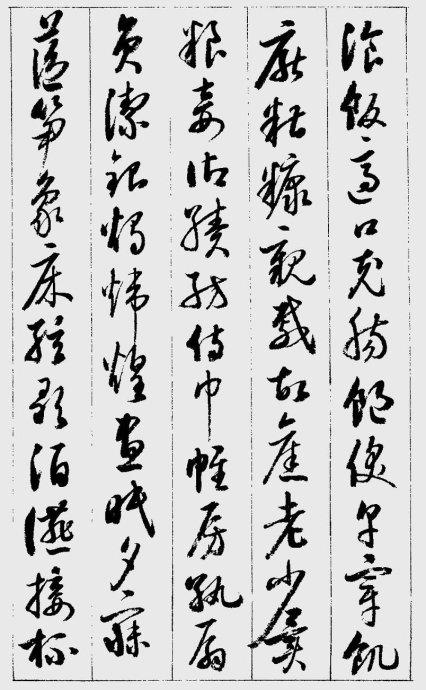 湌飯適口充腸飽飫享宰飢
厭糟糠親戚故舊老少異
粮妾御績紡侍巾帷房紈扇
員潔銀燭煒煌晝眠夕寐
藍筍象床絃歌酒讌接杯